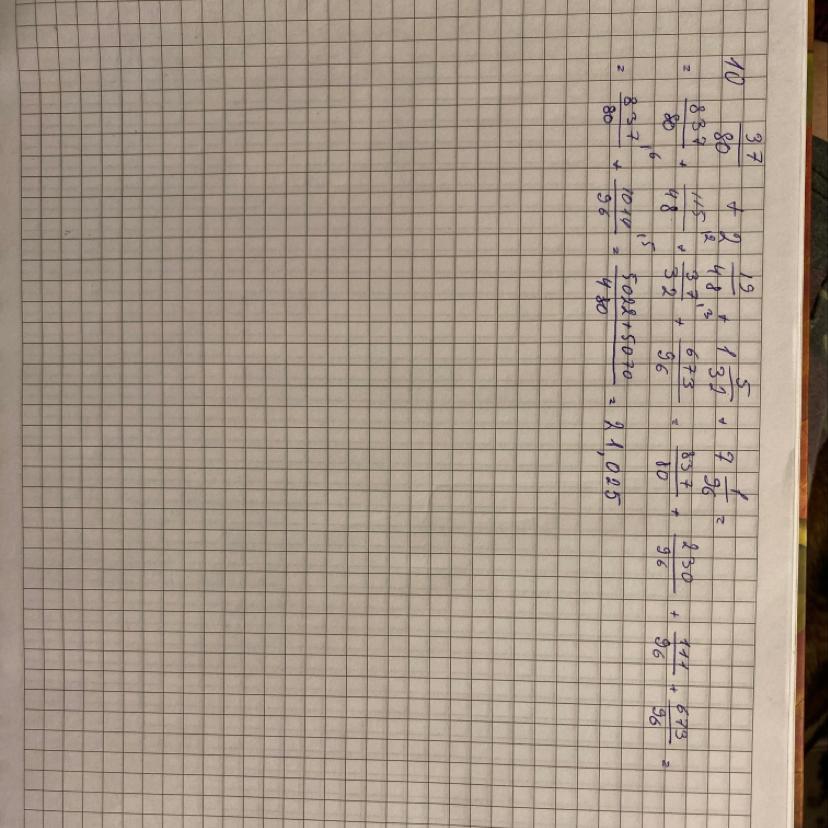 10 37/80 + 2 19/48 + 1 5/32 + 7 1/96 =
= 837/80 + 115/48 ,2 + 37/32 ,3 + 673/96 = 837/80 + 230/96 + 111/96 + 673/96 =
= 837/80 ,6 + 1014/96 ,5 = 5022+5070/480 = 21,025